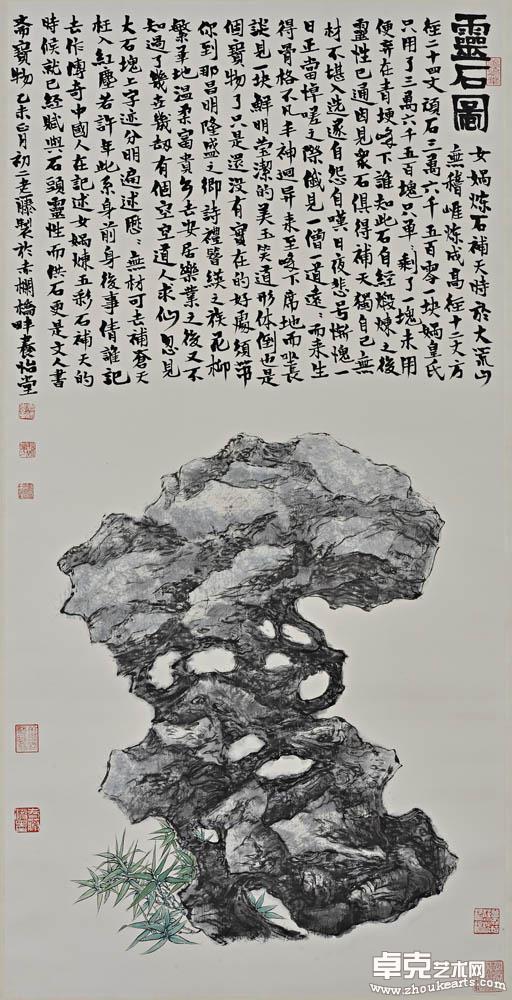 靈石圖
女媧煉石補天時於大荒山
無稽崖煉成高徑十二丈方
徑二十四丈頑石三萬六千五百零一塊媧皇氏
只用了三萬六千五百塊只單單剩了一塊未用
便弃在青埂峰下誰知此石自經煅煉之後
靈性已通因見衆石俱得補天獨自己無
材不堪入选遂自怨自嘆日夜悲号慚愧一
日正當悼嗟之際俄見一僧一道遠遠而来生
得骨格不凡丰神迥异来至峰下席地而坐長
談見一块鮮明瑩潔的美玉笑道形体倒也是
個寶物了只是還没有實在的好處須帶
你到那昌明隆盛之鄉詩禮簪纓之族花柳
繁華地温柔富貴鄉去安居樂業之後又不
知過了幾世幾劫有個空空道人求仙忽見
大石塊上字迹分明遍述歷歷無材可去補蒼天
枉入紅塵若許年此系身前身後事倩誰記
去作傳奇中國人在記述女媧煉五彩石補天的
時候就已經賦與石頭靈性而供石更是文人書
斋寶物乙未正月初二老藤製於赤欄橋畔養怡堂
卓克艺术网
www.zhoukearts.com